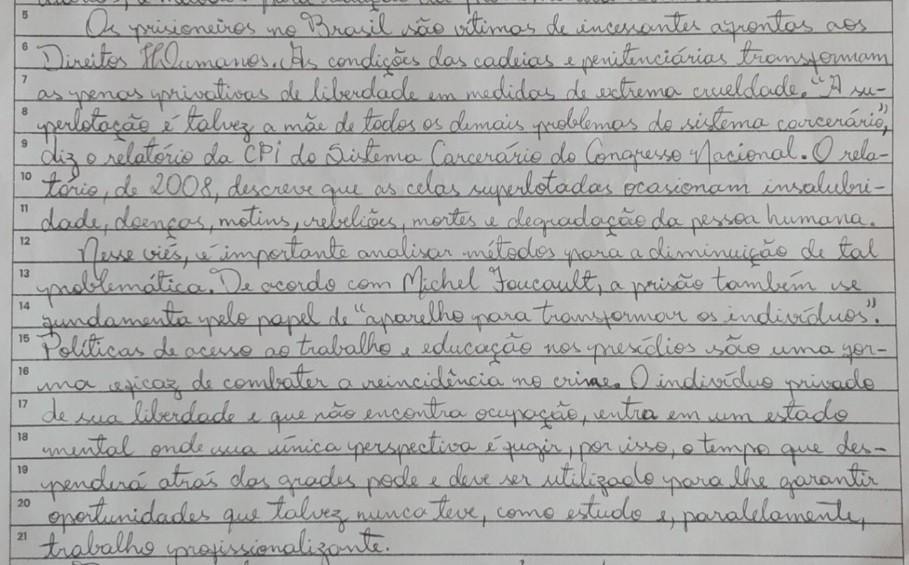 5 Os prisioneiros no Brasil são vítimas de incessantes afrontas aos
6 Direitos HUumanos. As condições das cadeias e penitenciárias transformam
7 as penas privativas de liberdade em medidas de extrema crueldade. "A su-
8 perlotação é talvez a mãe de todos os demais problemas do sistema carcerário",
9 diz o relatório da CPI do Sistema Carcerário do Congresso Nacional. O rela-
10 tório, de 2008, descreve que as celas superlotadas ocasionam insalubri-
11 dade, doenças, motins, rebeliões, mortes e degradação da pessoa humana.
12 Nesse viés, é importante analisar métodos para a diminuição de tal
13 problemática. De acordo com Michel Foucault, a prisão também se
14 fundamenta pelo papel de "aparelho para transformar os indivíduos".
15 Políticas de acesso ao trabalho e educação nos presídios são uma for-
16 ma eficaz de combater a reincidência no crime. O indivíduo privado
17 de sua liberdade e que não encontra ocupação, entra em um estado
18 mental onde sua única perspectiva é fugir, por isso, o tempo que des-
19 penderá atrás das grades pode e deve ser utilizado para lhe garantir
20 oportunidades que talvez nunca teve, como estudo e, paralelamente,
21 trabalho profissionalizante.